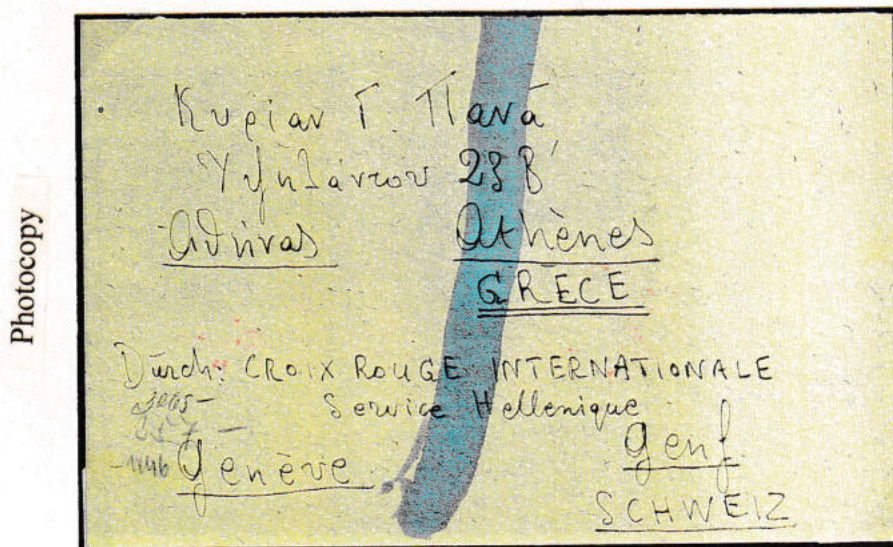 Photocopy
Κυρίαν Γ. Πανά
Υψηλάντου 23β'
Αθήνας Athènes
GRÈCE
Durch: CROIX ROUGE INTERNATIONALE
Service Hellenique
Genève Genf
SCHWEIZ